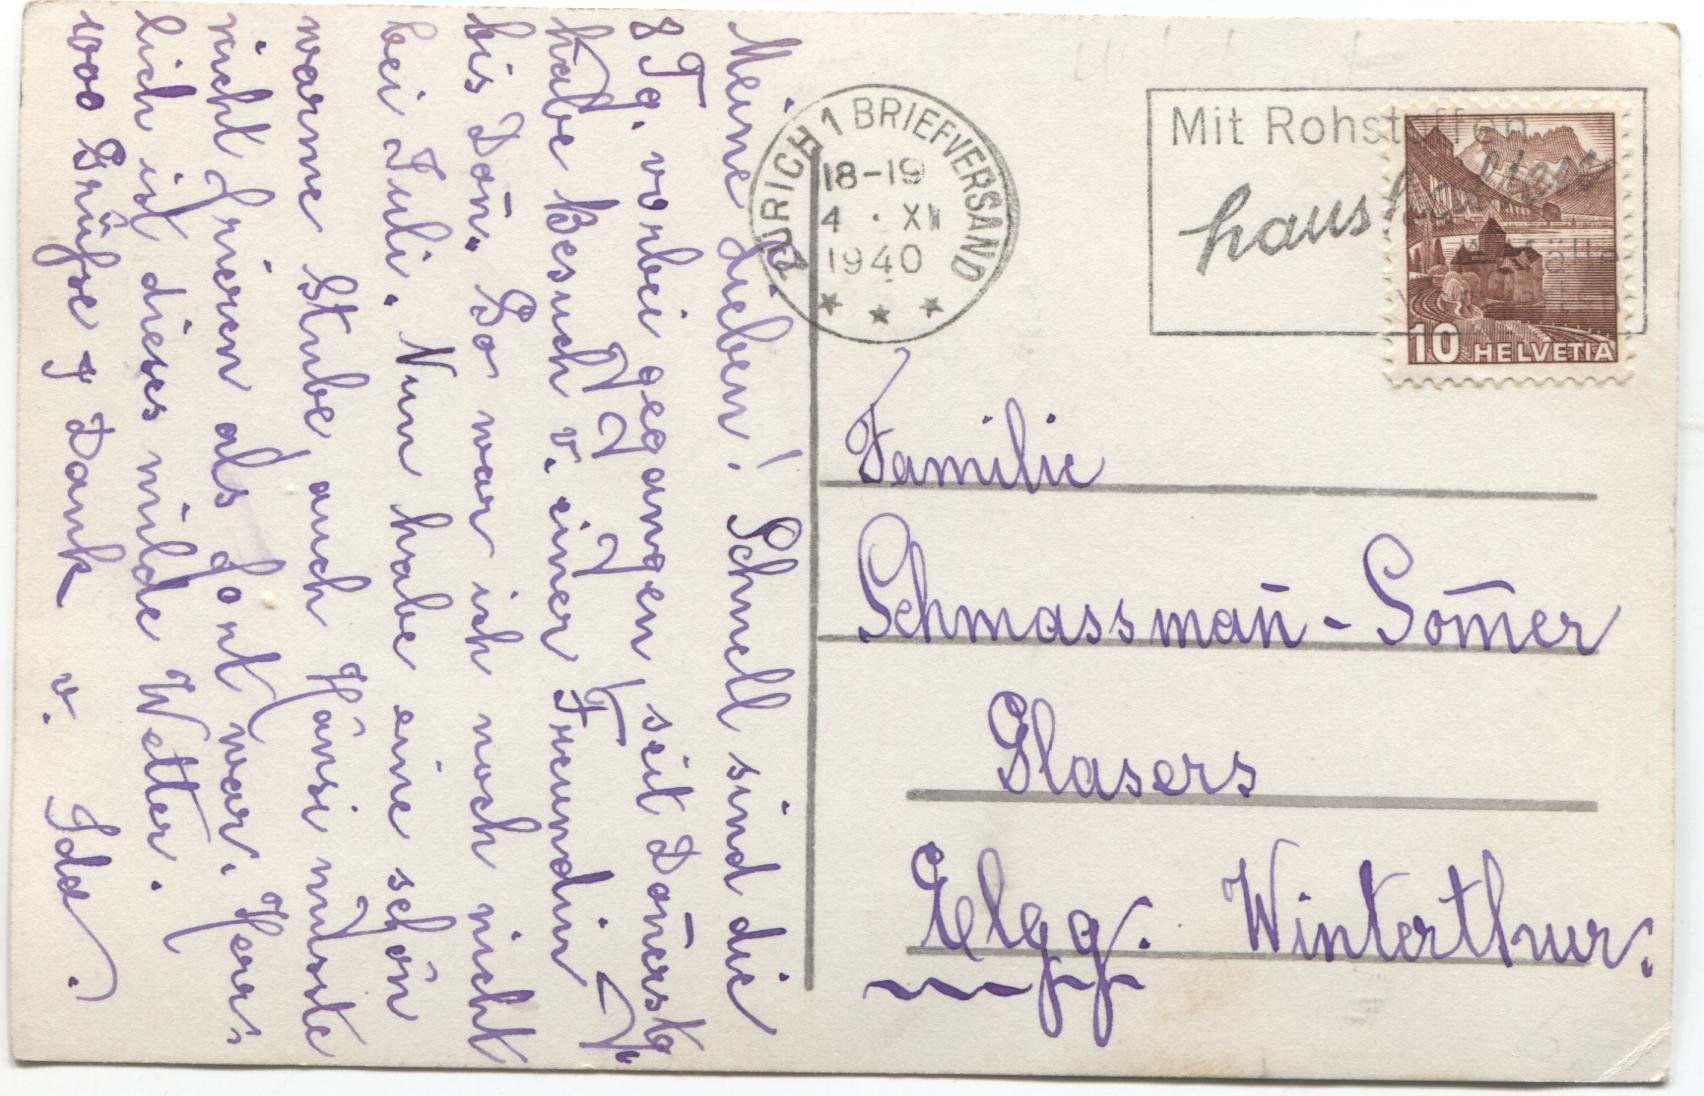 Meine Lieben! Schnell sind die
8 Tg. vorbei gegangen, seit Doñerstg
habe Besuch v. einer Freundin
bis Doñ. So war ich noch nicht
bei Juli. Nun habe eine schön
warme Stube, auch Hänsi musste
nicht frieren als fort war. Herz-
lich ist dieses milde Wetter.
1000 Grüsse & Dank v. Ida.
ZÜRICH 1 BRIEFVERSAND
18-19
4 · XII
1940
Mit Rohstoffen
haushalten
10 HELVETIA
Familie
Schmassmañ-Som̃er
Glasers
Elgg. Winterthur.